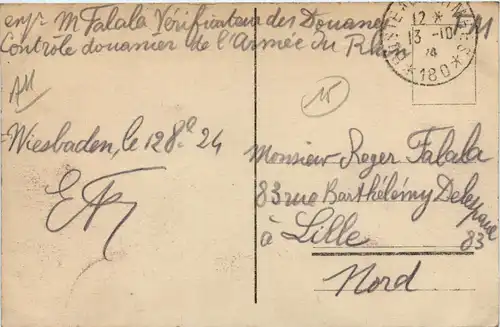 expr M Falala Vérificateur des Douanes
Contrôle douanier de l'Armée du Rhin
12 *
13 -10
24
* 180 *
All
15
Wiesbaden, le 12 8e 24
Monsieur Roger Falala
83 rue Barthélémy Delespaul
83
à Lille
Nord